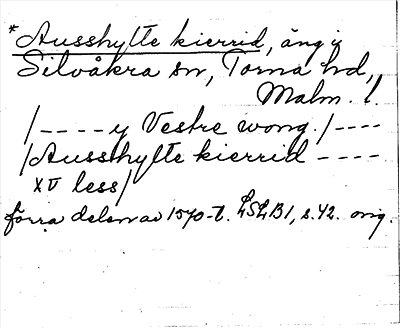 *Ausshylte kierrid, äng i
Silvåkra sn, Torna hd,
Malm. l.
/----y Vestre wong./----
/Ausshylte kierrid ----
XV less/
förra delen av 1570-t. LSLB1, s.42. orig.